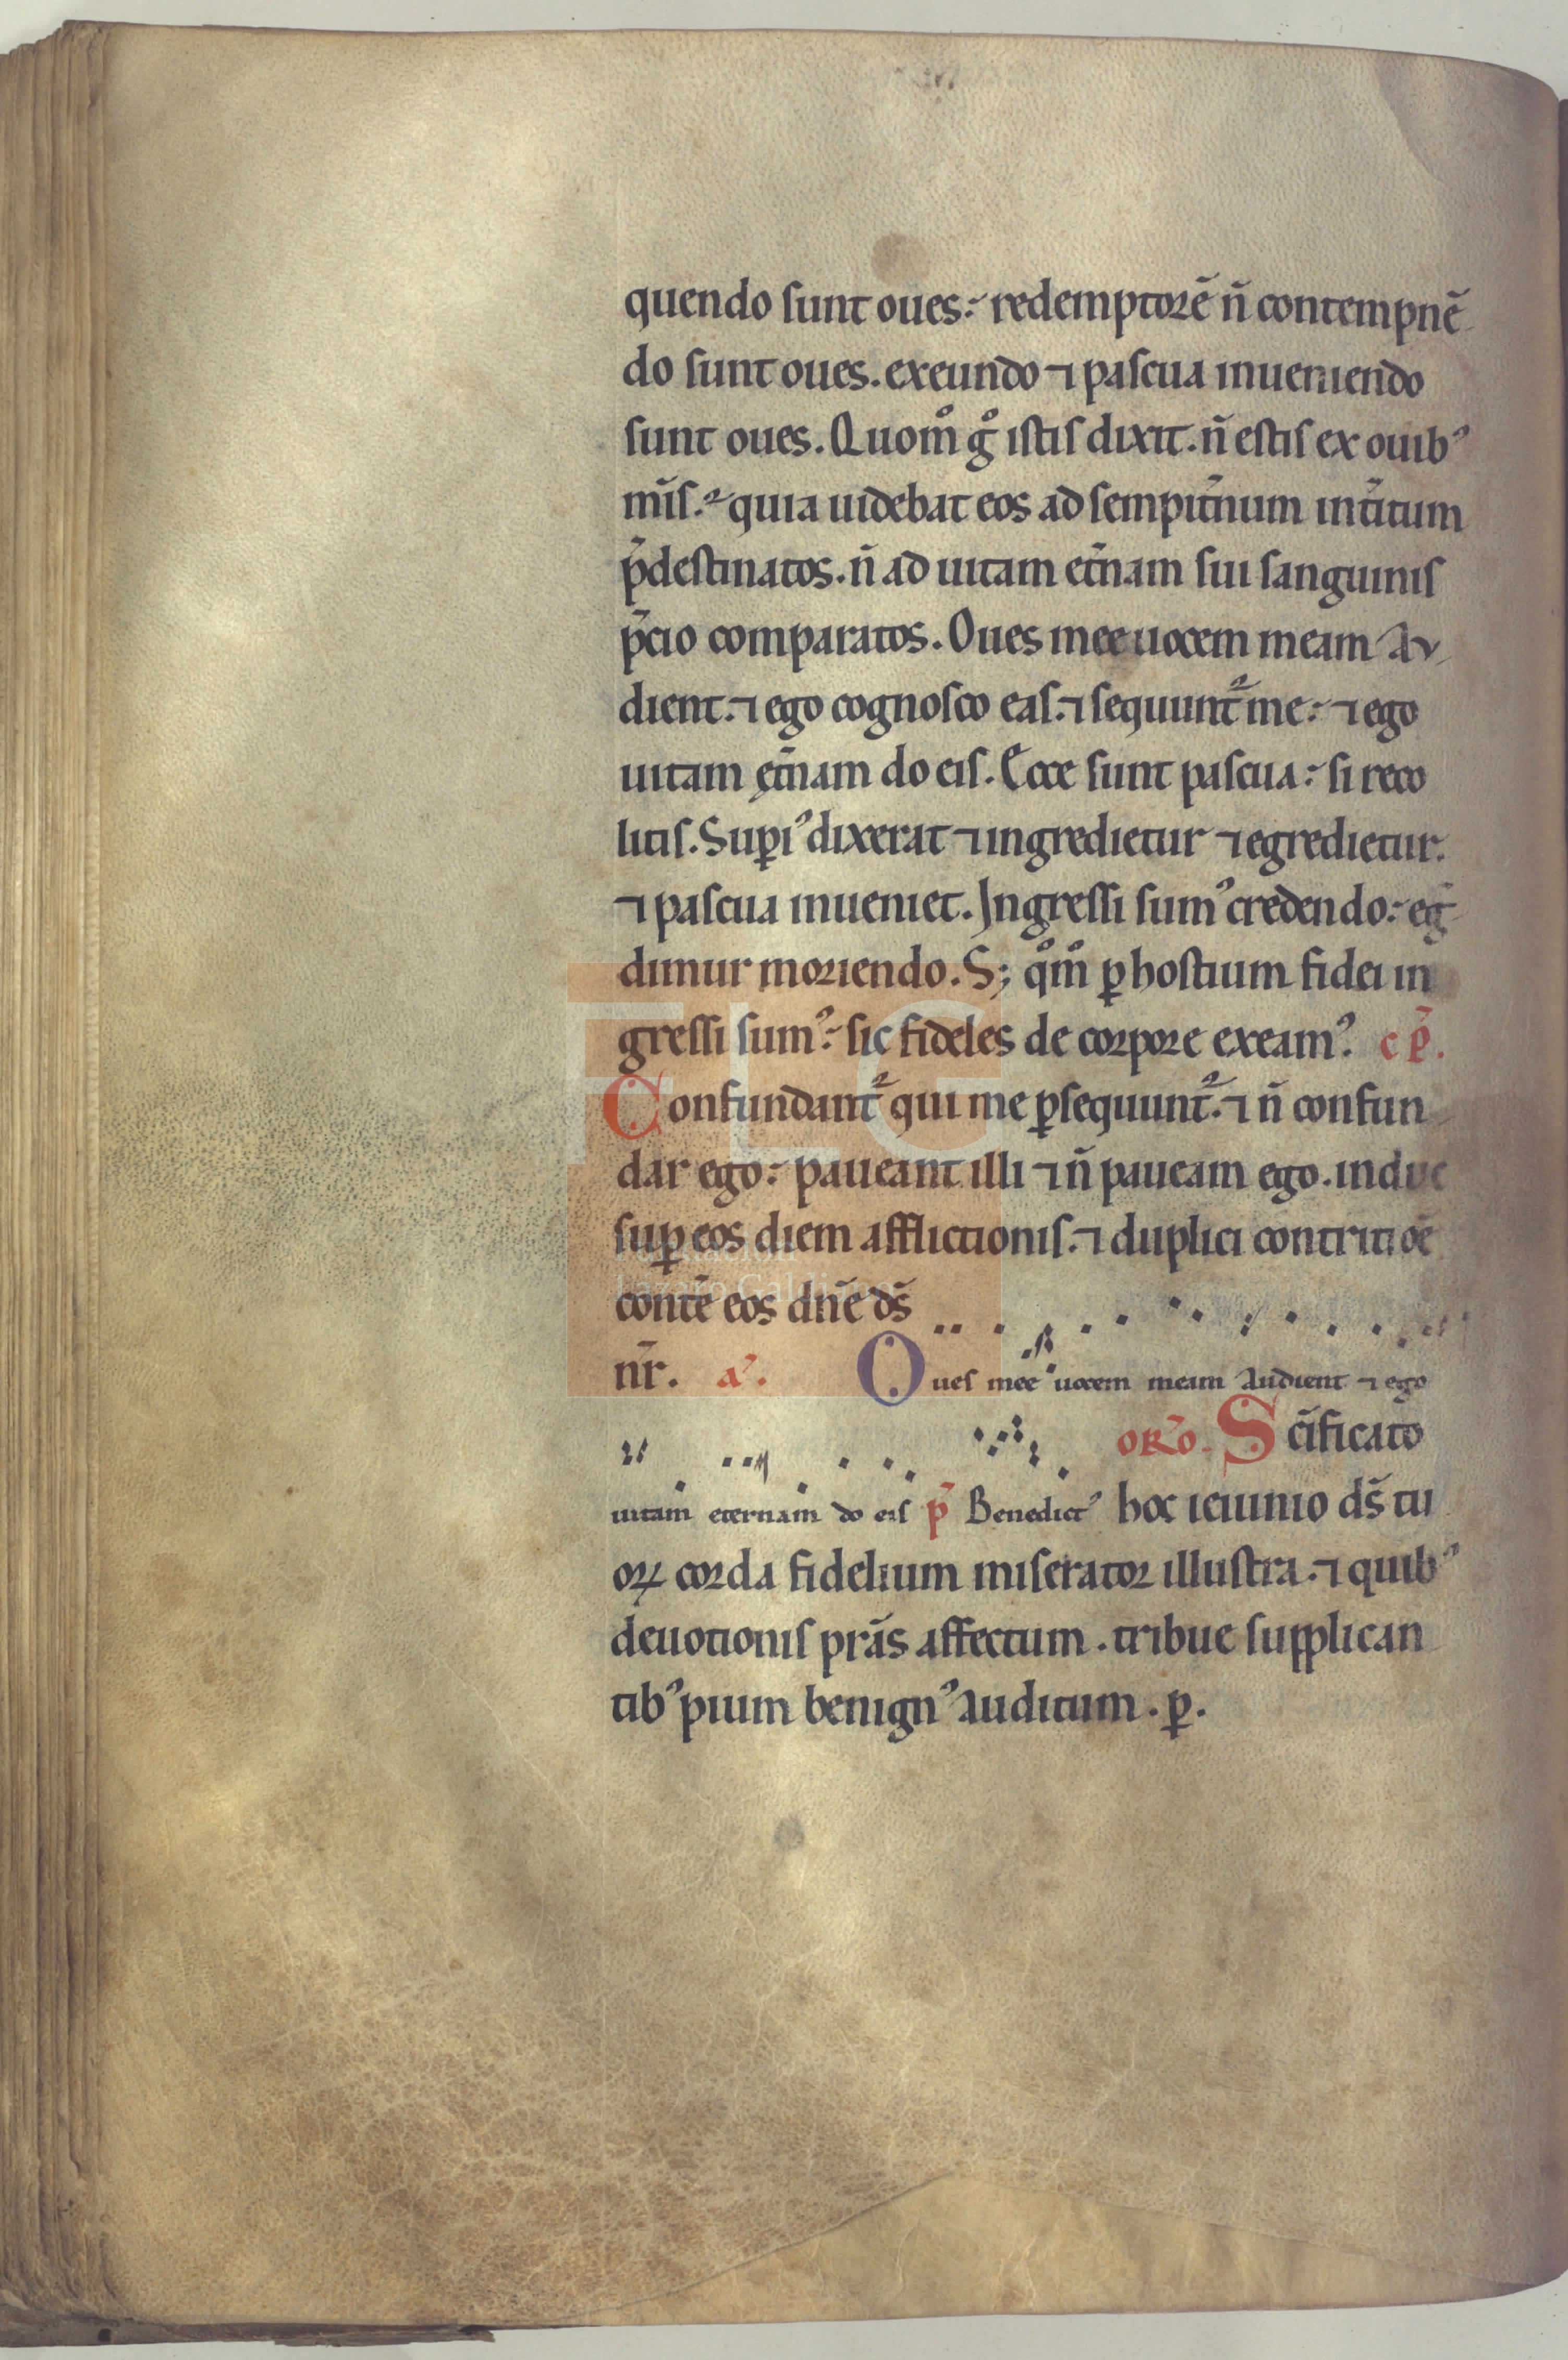 quendo sunt oues: redemptorē n̄ contempnē
do sunt oues. exeundo ⁊ pascua inueniendo
sunt oues. Quom̊ g̊ istis dixit. n̄ estis ex ouibꝰ
mīs. quia uidebat eos ad sempit̄num int̄itum
p̄destinatos. n̄ ad uitam et̄nam sui sanguinis
p̄cio comparatos. Oues mee uocem meam au
dient. ⁊ ego cognosco eas. ⁊ sequunt᷑ me: ⁊ ego
uitam ęt̄nam do eis. Ecce sunt pascua: si reco
litis. Supꝰ dixerat ⁊ ingredietur ⁊ egredietur.
⁊ pascua inueniet. Ingressi sumꝰ credendo: eḡ
dimur moriendo. S; q̊m̊ ꝑ hostium fidei in
gressi sumꝰ: sic fideles de corpore exeamꝰ. c p̄.
Confundant᷑ qui me ꝑsequunt᷑. ⁊ n̄ confun
dar ego: paueant illi ⁊ n̄ paueam ego. induc
suꝑ eos diem afflictionis. ⁊ duplici contritiōe
contē eos dn̄e ds̄
nr̄. aꝰ. Oues mee uocem meam audient ⁊ ego
oro. Sc̄ificato
uitam eternam do eis p̄ Benedictꝰ hoc ieiunio ds̄ tu
oꝝ corda fidelium miserator illustra. ⁊ quibꝰ
deuotionis prās affectum. tribue supplican
tibꝰ pium benignꝰ auditum. ꝑ.
FLG
Lázaro Galdiano